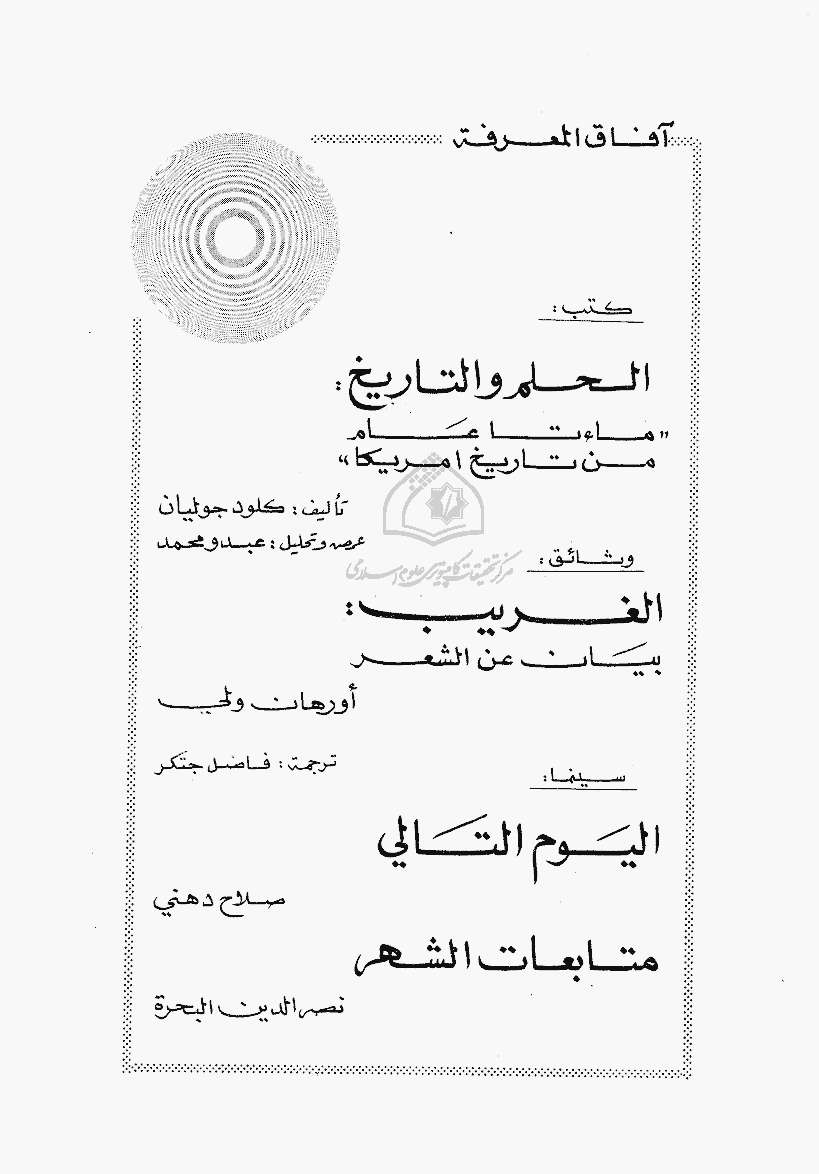 آفاق المعرفة
كتب:
الحلم والتاريخ:
"ماءتا عام
من تاريخ امريكا"
تأليف: كلود جوليان
عرض وتحليل: عبدو محمد
وثائق:
الغريب:
بيان عن الشعر
أورهان ولي
ترجمة: فاضل جتكر
سينما:
اليوم التالي
صلاح دهني
متابعات الشهر
نصر الدين البحرة
مركز تحقیقات کامپیوتری علوم اسلامی